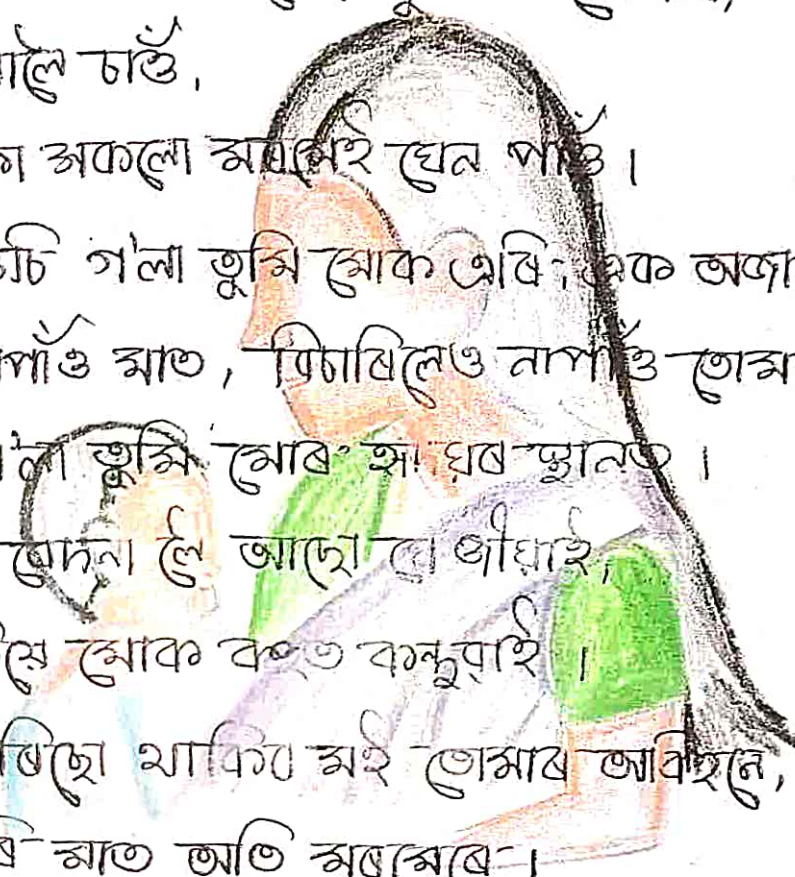 ালৈ চাওঁ,
অকলো মৰমেই যেন পাওঁ।
চি গ'লা তুমি মোক এৰি; এক অজা
পাওঁ মাত, বিচাৰিলেও নাপাওঁ তোমা
'লা তুমি মোৰ ঘৰ স্থানত।
বেদনা লৈ আছো জীয়াই,
য়ে মোক বহুত কন্দুৱাই।
ৰিছো থাকিব মই তোমাৰ অবিহনে,
মাত অতি মৰমেৰে।